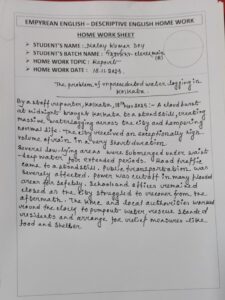 EMPYREAN ENGLISH - DESCRIPTIVE ENGLISH HOME WORK
HOME WORK SHEET
➤ STUDENT'S NAME : Malay Kumar Dey
➤ STUDENT'S BATCH NAME :
➤ HOME WORK TOPIC : Report
➤ HOME WORK DATE : 18.11.2025.
The problem of unprecedented water logging in
Kolkata
By a staff reporter, Kolkata, 18th Nov 2025 :- A cloud burst
at midnight brought Kolkata to a standstill, creating
massive waterlogging across the city and hampering
normal life. The city received an exceptionally high
volume of rain in a very short duration.
Several low-lying areas were submerged under waist
-deep water for extended periods. Road traffic
came to a standstill. Public transportation was
severely affected. Power was cut off in many flooded
areas for safety. Schools and offices remained
closed as the city struggled to recover from the
aftermath. The KMC and local authorities worked
round the clock to pump out water, rescue stranded
residents and arrange for relief measures like
food and shelter.